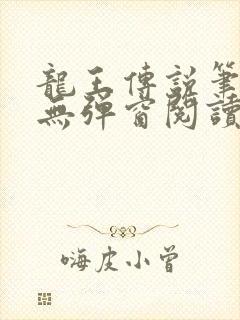 龍王傳說筆
無彈窗閱讀
嗨皮小曾